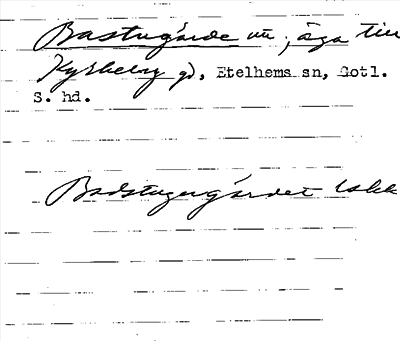 Bastugärde un, äga till
Kyrkeby gd, Etelhems sn, Gotl.
S. hd.
Badstugugärdet